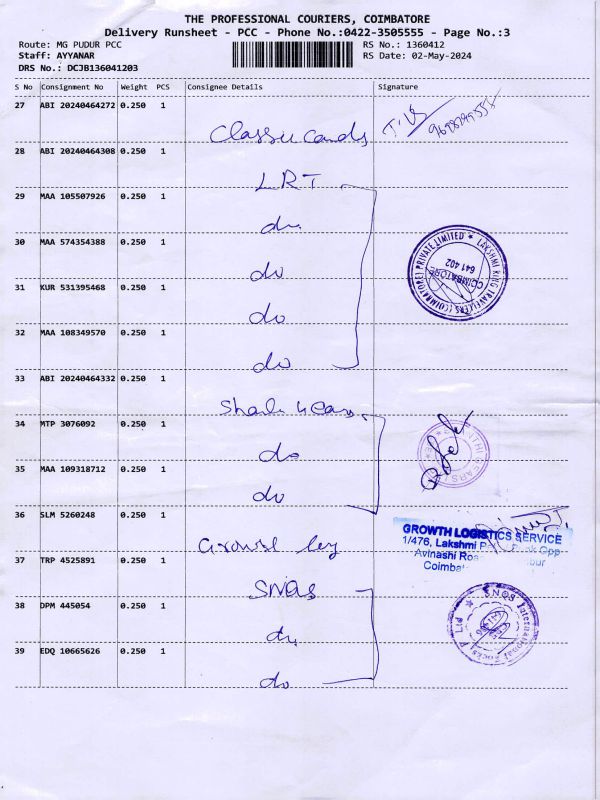 THE PROFESSIONAL COURIERS, COIMBATORE
Delivery Runsheet - PCC - Phone No.:0422-3505555 - Page No.:3
Route: MG PUDUR PCC
RS No.: 1360412
Staff: AYYANAR
RS Date: 02-May-2024
DRS No.: DCJB136041203
S No Consignment No Weight PCS Consignee Details Signature
27 ABI 20240464272 0.250 1
28 ABI 20240464308 0.250 1
LRT
29 MAA 105507926 0.250 1
do
30 MAA 574354388 0.250 1
do
31 KUR 531395468 0.250 1
do
32 MAA 108349570 0.250 1
do
LAKSHMI KING TRAVELLERS (COIMBATORE) PRIVATE LIMITED
COIMBATORE
641 402
33 ABI 20240464332 0.250 1
34 MTP 3076092 0.250 1
do
35 MAA 109318712 0.250 1
do
36 SLM 5260248 0.250 1
GROWTH LOGISTICS SERVICE
1/476, Lakshmi
Avinashi
37 TRP 4525891 0.250 1
SNQS
38 DPM 445054 0.250 1
do
39 EDQ 10665626 0.250 1
do
SNQS International Socks P Ltd